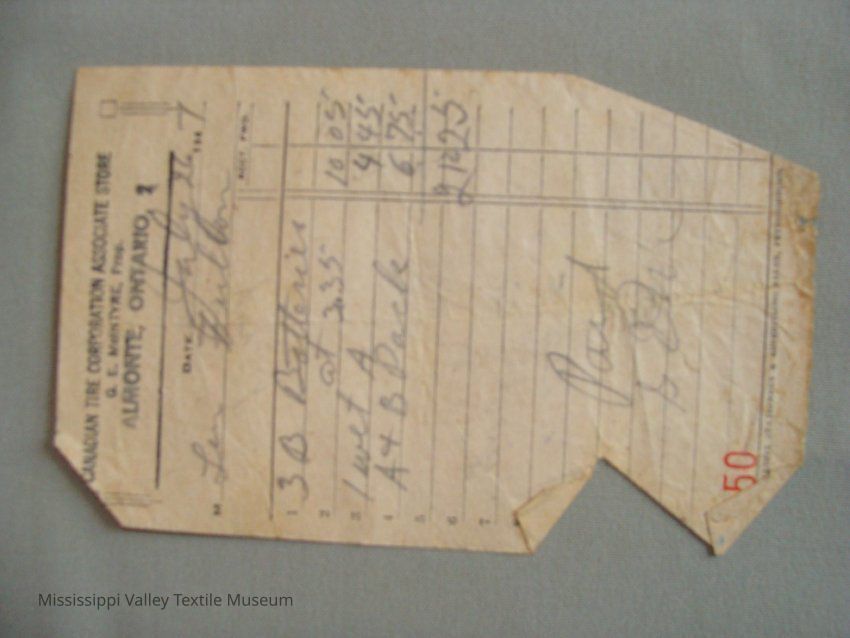 CANADIAN TIRE CORPORATION ASSOCIATE STORE
G. E. McINTYRE, Prop.
ALMONTE, ONTARIO
DATE July 26 19 47
M Len
ACCT. FWD.
1 3 B Batteries 10 05
2 at 335
3 1 wet A 4 45
4 A & B Pack 6 75
5
6 21 25
7
Paid
50
Mississippi Valley Textile Museum